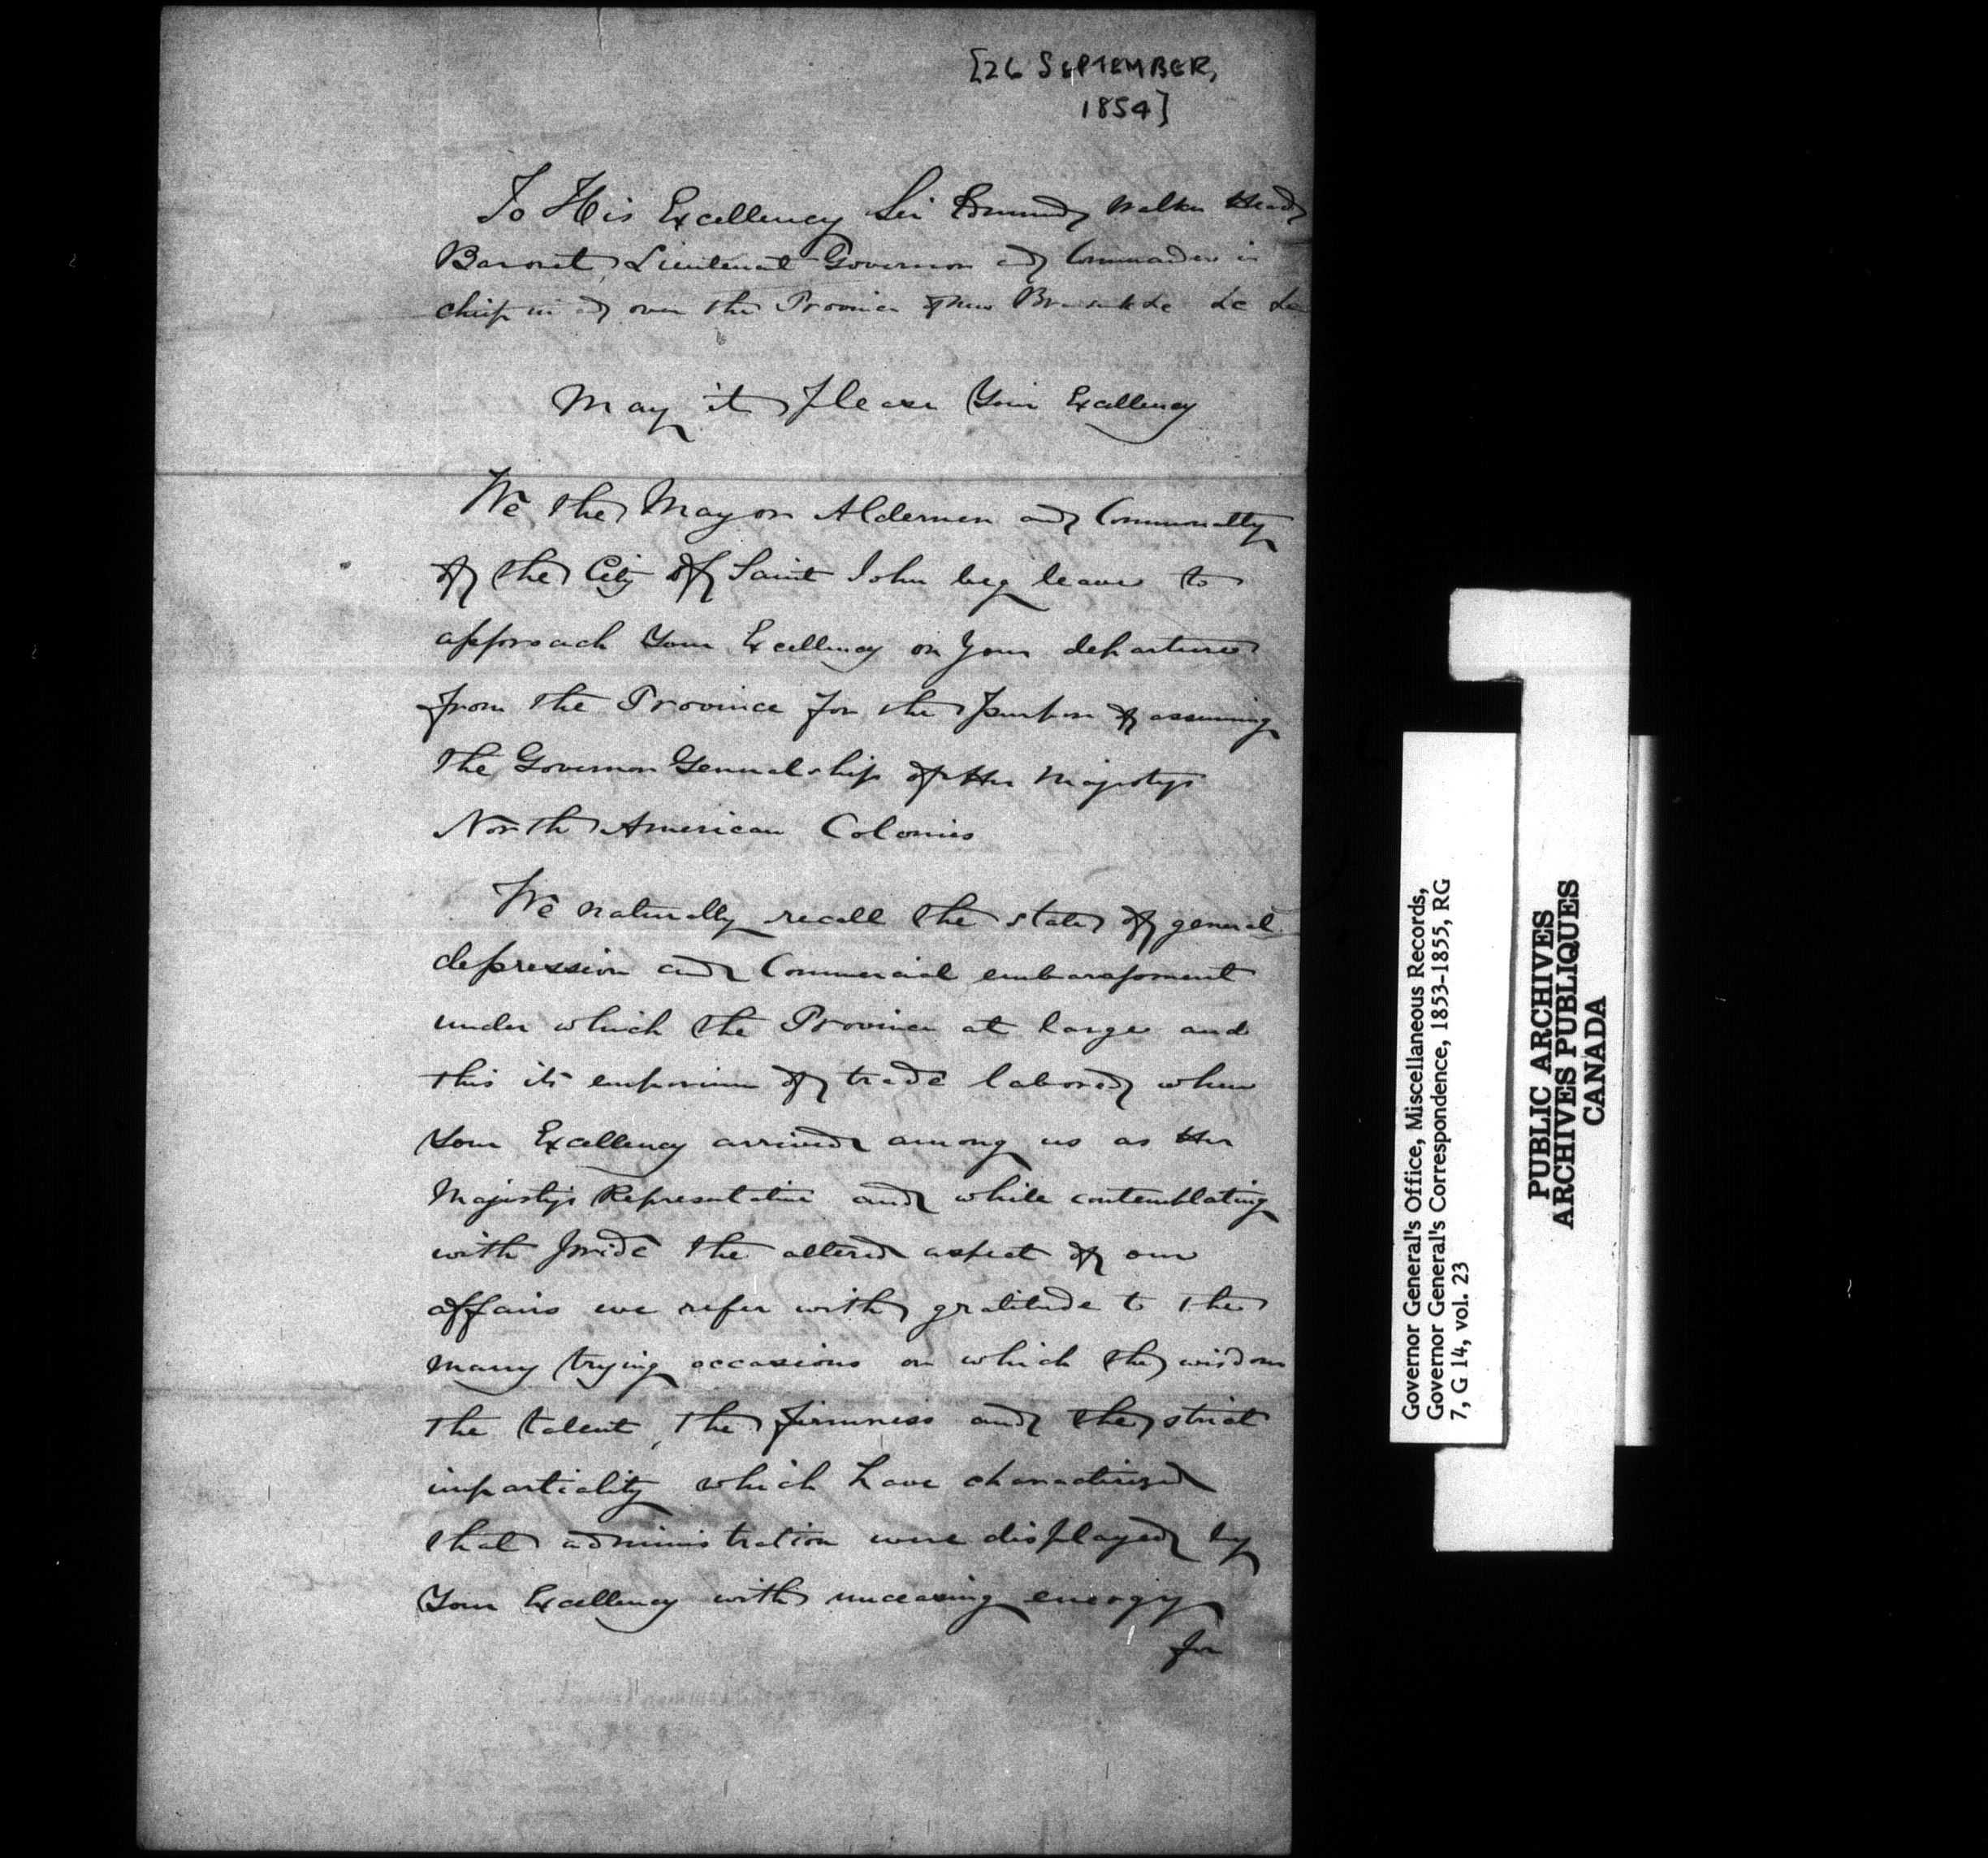 [26 SEPTEMBER,
1854]
To His Excellency Sir Edmund Walker Head
Baronet, Lieutenant Governor and Commander in
chief in and over the Province of New Brunswick &c &c &c
May it please Your Excellency
We the Mayor Aldermen and Commonalty
of the City of Saint John beg leave to
approach Your Excellency on your departure
from the Province for the purpose of assuming
the Governor Generalship of Her Majestys
North American Colonies
We naturally recall the state of general
depression and Commercial embarassment
under which the Province at large and
this its emporium of trade labored when
Your Excellency arrived among us as Her
Majestys Representative and while contemplating
with pride the altered aspect of our
affairs we refer with gratitude to the
many trying occasions on which the wisdom
the talent, the firmness and the strict
impartiality which have characterized
that administration were displayed by
Your Excellency with unceasing energy
for
Governor General's Office, Miscellaneous Records,
Governor General's Correspondence, 1853-1855, RG
7, G 14, vol. 23
PUBLIC ARCHIVES
ARCHIVES PUBLIQUES
CANADA